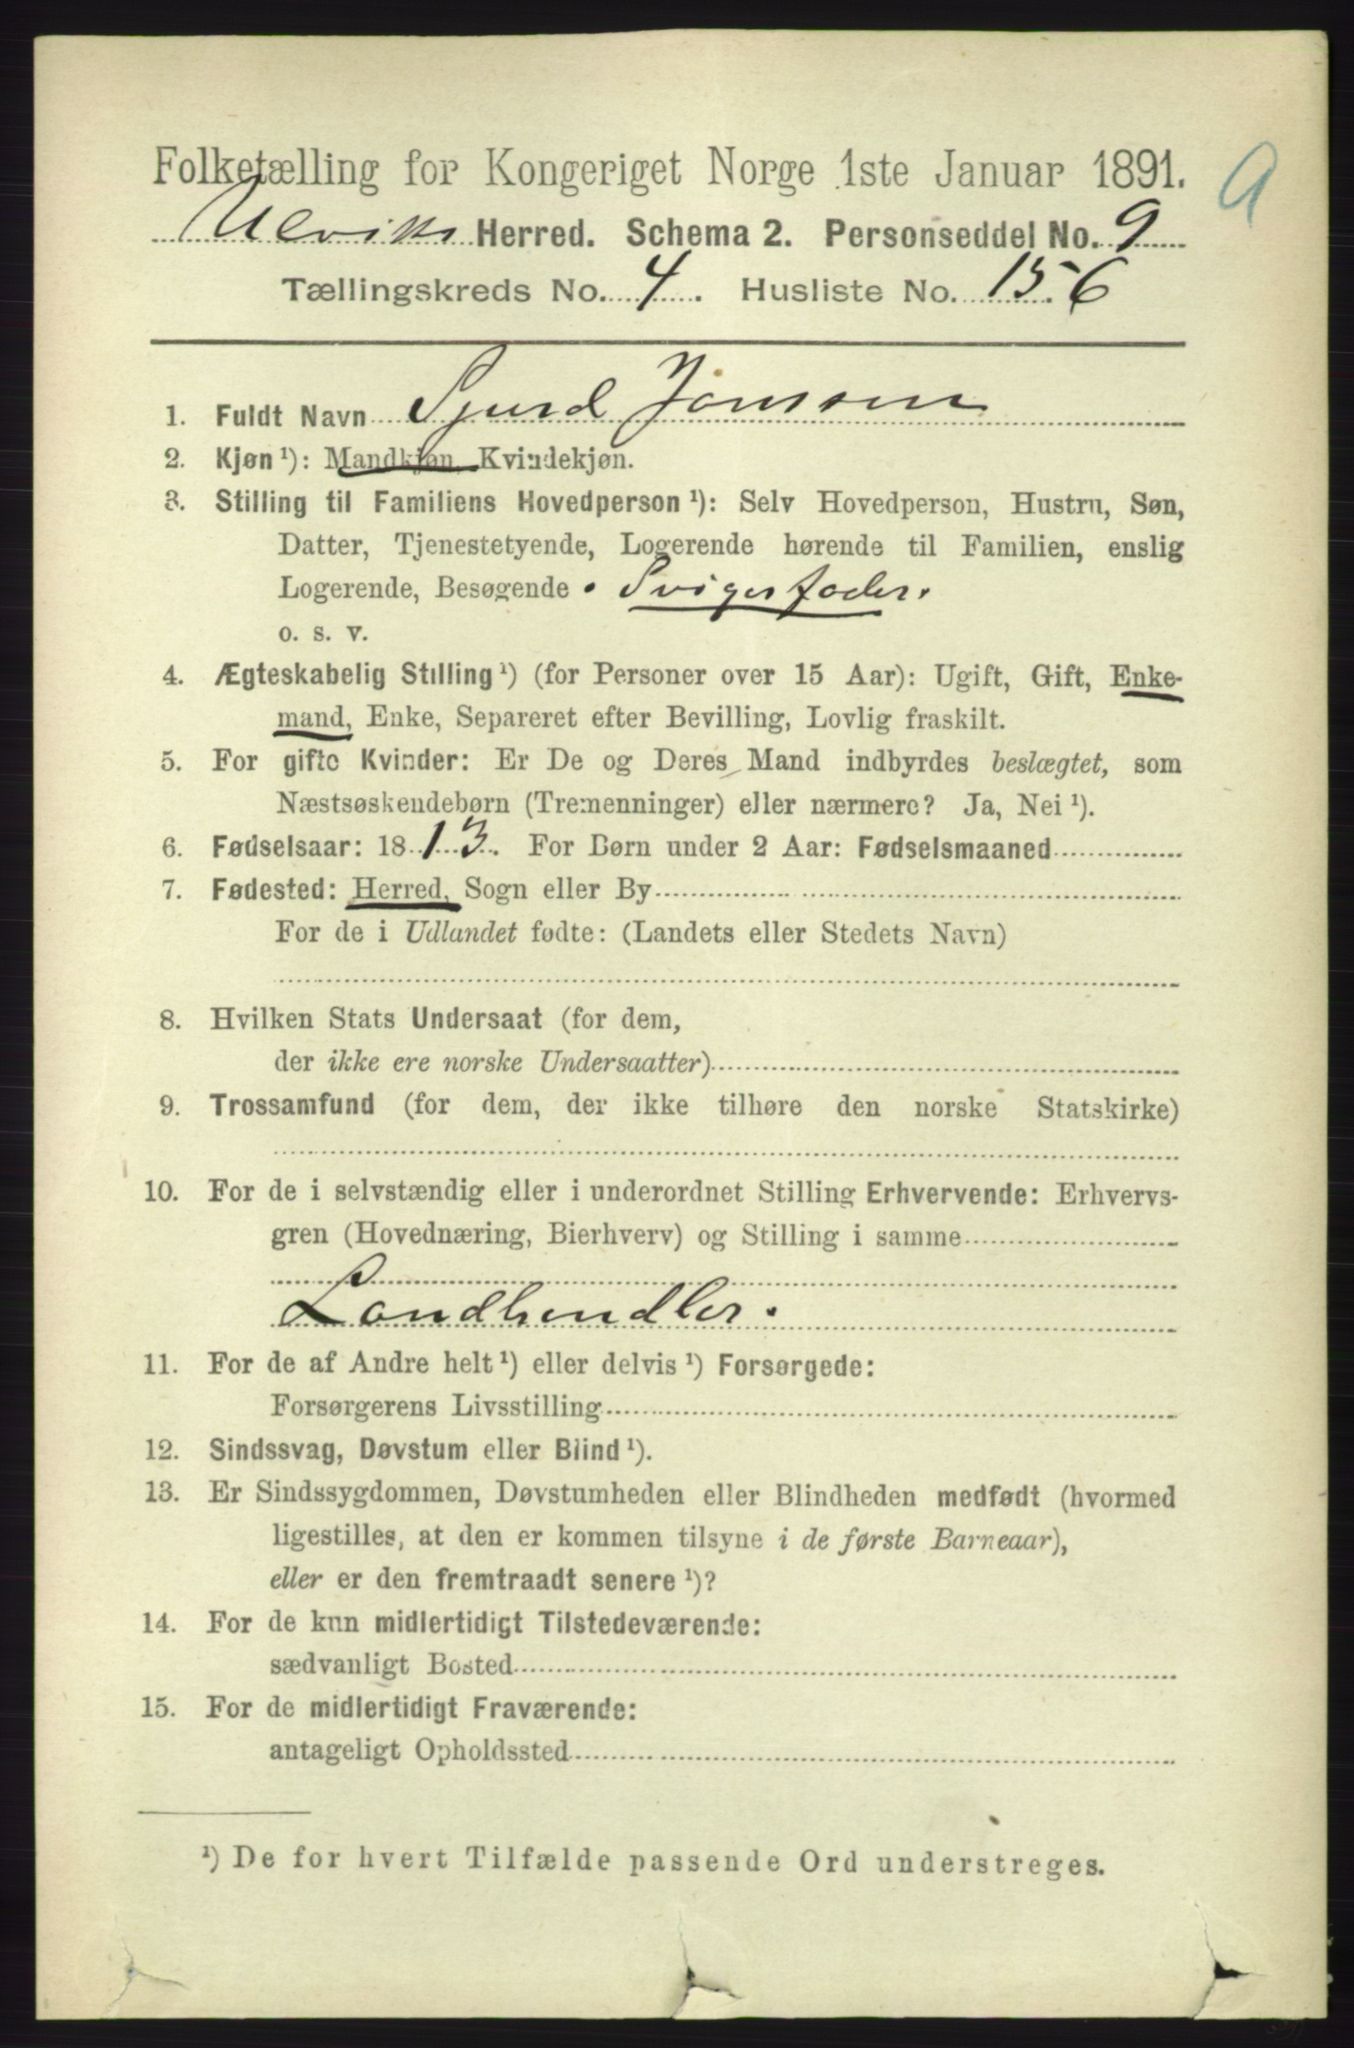 Folketælling for Kongeriget Norge 1ste Januar 1891.
9
Ulviks Herred. Schema 2. Personseddel No. 9
Tællingskreds No. 4. Husliste No. 156
1. Fuldt Navn Sjurd Jonssen
2. Kjøn¹): Mandkjøn, Kvindekjøn.
3. Stilling til Familiens Hovedperson¹): Selv Hovedperson, Hustru, Søn,
Datter, Tjenestetyende, Logerende hørende til Familien, enslig
Logerende, Besøgende . Svigerfader.
o. s. v.
4. Ægteskabelig Stilling¹) (for Personer over 15 Aar): Ugift, Gift, Enke-
mand, Enke, Separeret efter Bevilling, Lovlig fraskilt.
5. For gifte Kvinder: Er De og Deres Mand indbyrdes beslægtet, som
Næstsøskendebørn (Tremenninger) eller nærmere? Ja, Nei¹).
6. Fødselsaar: 1813. For Børn under 2 Aar: Fødselsmaaned
7. Fødested: Herred, Sogn eller By
For de i Udlandet fødte: (Landets eller Stedets Navn)
8. Hvilken Stats Undersaat (for dem,
der ikke ere norske Undersaatter)
9. Trossamfund (for dem, der ikke tilhøre den norske Statskirke)
10. For de i selvstændig eller i underordnet Stilling Erhvervende: Erhvervs-
gren (Hovednæring, Bierhverv) og Stilling i samme
Landhandler.
11. For de af Andre helt¹) eller delvis¹) Forsørgede:
Forsørgerens Livsstilling
12. Sindssvag, Døvstum eller Blind¹).
13. Er Sindssygdommen, Døvstumheden eller Blindheden medfødt (hvormed
ligestilles, at den er kommen tilsyne i de første Barneaar),
eller er den fremtraadt senere¹)?
14. For de kun midlertidigt Tilstedeværende:
sædvanligt Bosted
15. For de midlertidigt Fraværende:
antageligt Opholdssted
¹) De for hvert Tilfælde passende Ord understreges.